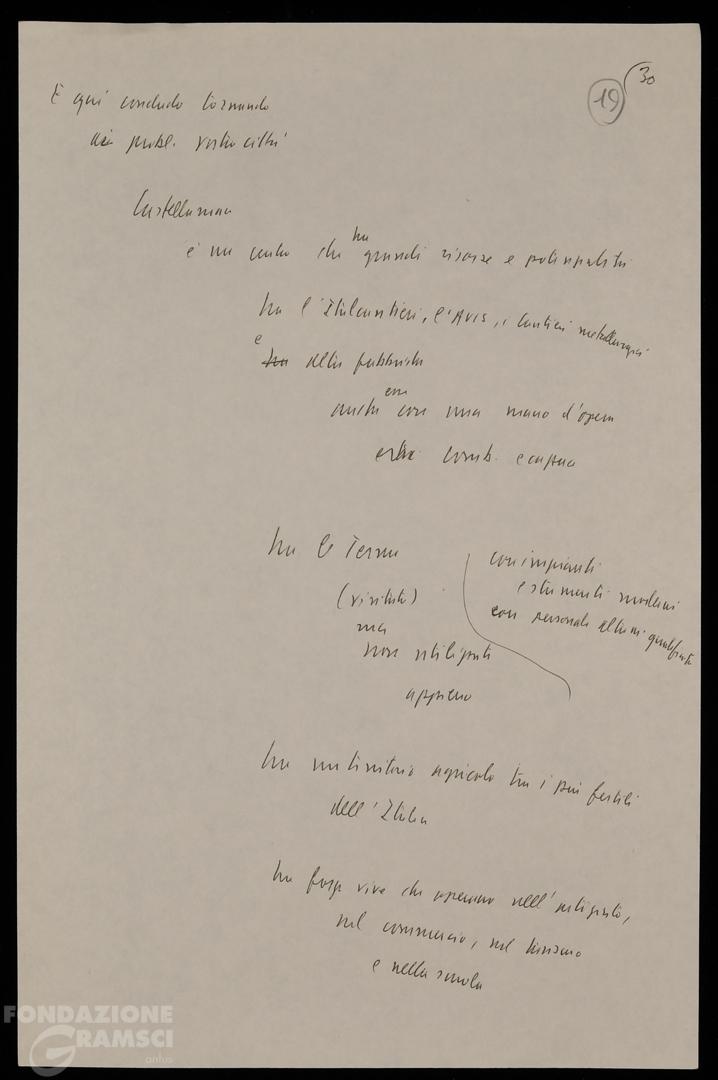 30
19
E qui concludo tornando
ai probl. vostra città
Castellammare
è un centro che ha grandi risorse e potenzialità
ha l'Italcantieri, l'Avis, i Cantieri metallurgici
e ha altre fabbriche
anche con una mano d'opera
comb. e capace
ha le Terme
(visitate)
ma
non utilizzati
appieno
con impianti
e strumenti moderni
con personale altam. qualificato
ha un territorio agricolo tra i più fertili
dell'Italia
ha forze vive che operano nell'artigianato,
nel commercio, nel turismo
e nella scuola
FONDAZIONE
GRAMSCI
onlus